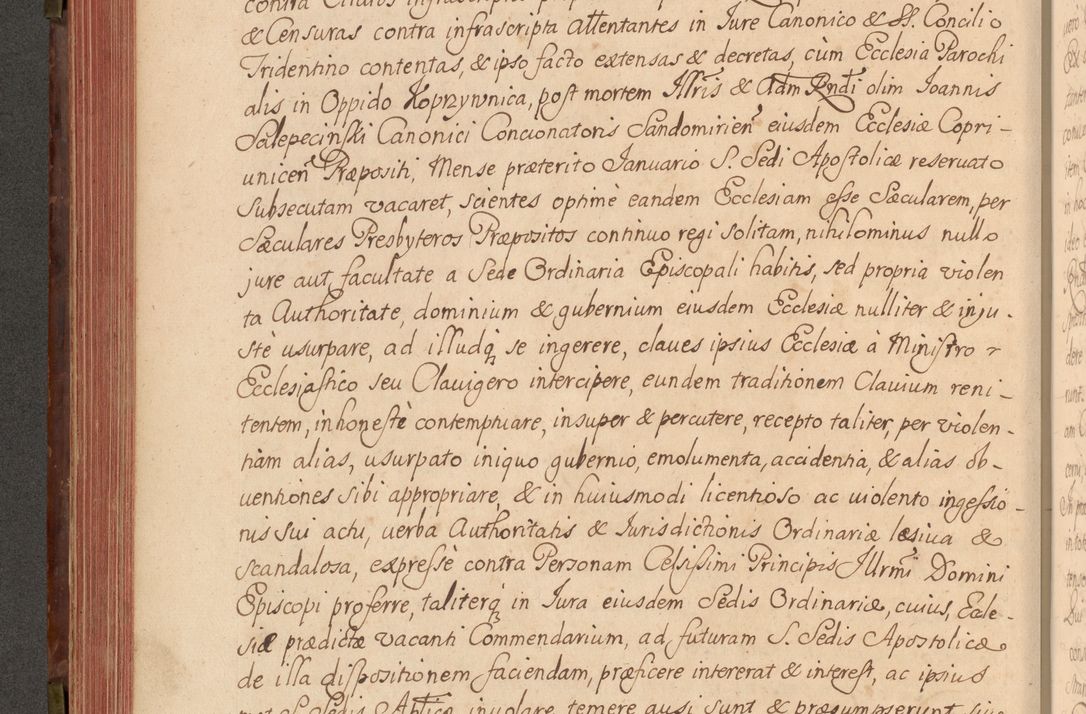 contra Citatos infrascriptos
& Censuras contra infrascripta attentantes in Iure Canonico & SS. Concilio
Tridentino contentas, & ipso facto extensas & decretas, cùm Ecclesia Parochi
alis in Oppido Koprzywnica, post mortem Illris & Adm Rndi olim Joannis
Salepecinski Canonici Concionatoris Sandomirien eiusdem Ecclesiæ Copri-
unicen Præpositi, Mense præterito Januario S. Sedi Apostolicæ reservato
subsecutam vacaret, scientes optimè eandem Ecclesiam esse Sæcularem, per
Sæculares Presbyteros Præpositos continuo regi solitam, nihilominus nullo
jure aut facultate a Sede Ordinaria Episcopali habitis, sed propria violen
ta Authoritate, dominium & gubernium eiusdem Ecclesiæ nulliter & inju-
stè usurpare, ad illudq se ingerere, claves ipsius Ecclesiæ à Ministro
Ecclesiastico seu Clavigero intercipere, eundem traditionem Clavium reni-
tentem, inhonestè contemptuare, insuper & percutere, recepto taliter, per violen-
tiam alias, usurpato iniquo gubernio, emolumenta, accidentia, & alias ob-
ventiones sibi appropriare, & in huiusmodi licentioso ac violento ingessio-
nis sui actu, verba Authoritatis & Jurisdictionis Ordinariæ læsiva &
scandalosa, expressè contra Personam Celsissimi Principis Illrmi Domini
Episcopi proferre, taliterq in Jura eiusdem Sedis Ordinariæ, cuius, Eccle-
siæ prædictæ vacanti Commendarium, ad futuram S. Sedis Apostolicæ
de illa dispositionem faciendam, præficere intererat & interest, ac ipsius
met S. Sedis Aplicæ involare temere ausi sunt & præsumpserunt sive